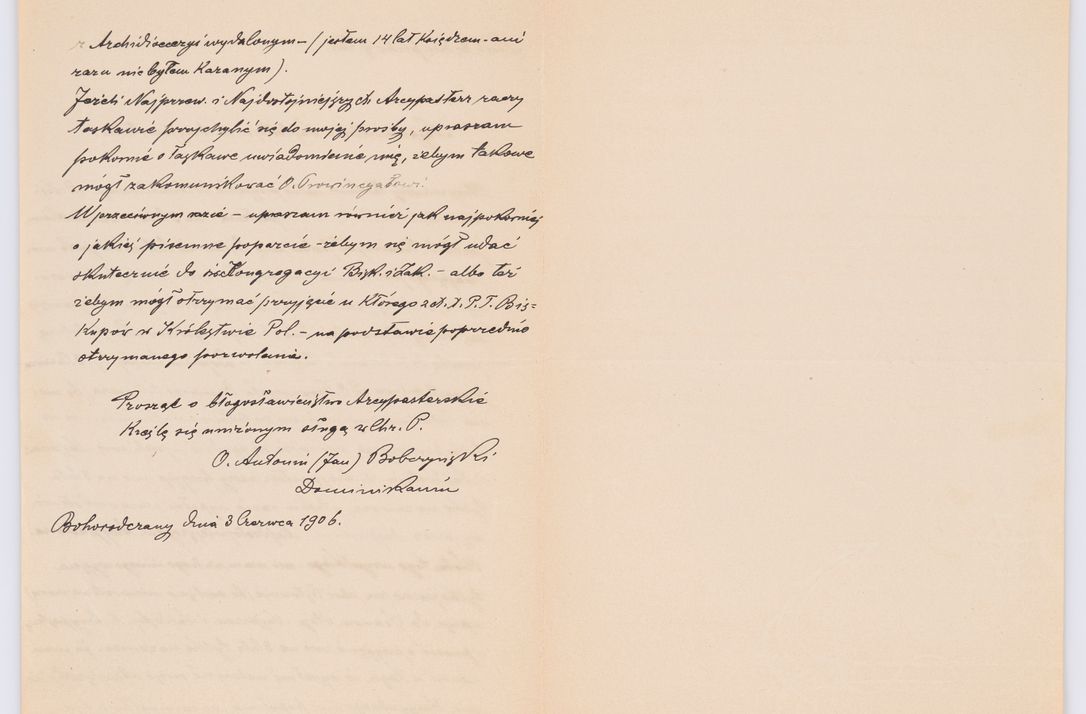 z Archidiecezyi wydalonym – (jestem 14 lat Księdzem – ani
razu nie byłem Karanym).
Jeżeli Najprzew. i Najdostojniejszych Arcypasterz raczy
łaskawie przychylić się do mojej prośby, upraszam
pokornie o łaskawe uwiadomienie mię, żebym takowe
mógł zakomunikować O. Prowincyałowi.
W przeciwnym razie – upraszam również jak najpokorniej
o jakieś pisemne poparcie – żebym się mógł udać
skutecznie do Kongregacyi Bisk. i Zak. – albo też
żebym mógł otrzymać przyjęcie u Którego z P. T. Bis=
kupów w Królestwie Pol. – na podstawie poprzednio
otrzymanego pozwolenia.
Prosząc o błogosławieństwo Arcypasterskie
Kreślę się uniżonym sługą w Chr. P.
O. Antonin (Jan) Bobrzyński
Dominikanin
Bohorodczany dnia 3 Czerwca 1906.